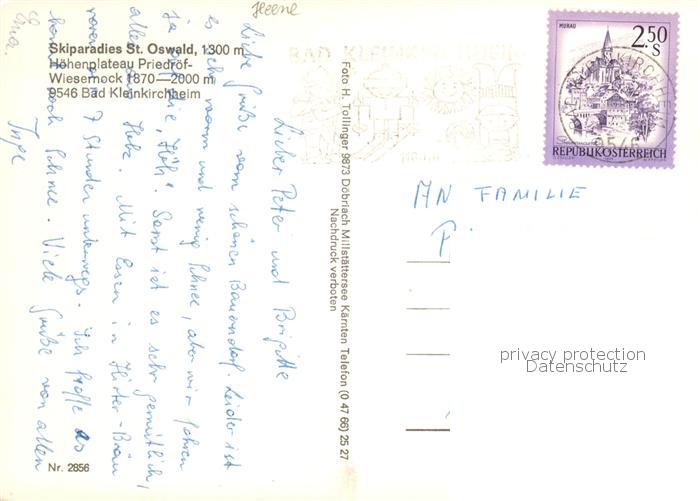 Heene
Skiparadies St. Oswald, 1300 m
Höhenplateau Priedröf-
Wiesernock 1870—2000 m
9546 Bad Kleinkirchheim
Lieber Peter und Brigitte
Liebe Grüße vom schönen Bauerndorf. Leider ist
es sehr warm und wenig Schnee, aber wir fahren
ja in die "Höh". Sonst ist es sehr gemütlich,
alles Holz. Mit Essen in Hirter-Bräu
waren 7 Stunden unterwegs. Ich hoffe es
noch Schnee. Viele Grüße von allen
Inge
Nr. 2856
Foto H. Tollinger 9873 Döbriach Millstättersee Kärnten Telefon (0 47 66) 25 27
Nachdruck verboten
BAD KLEINKIRCHHEIM
MURAU
2.50
S
REPUBLIK ÖSTERREICH
9546
AN FAMILIE
F.
privacy protection
Datenschutz